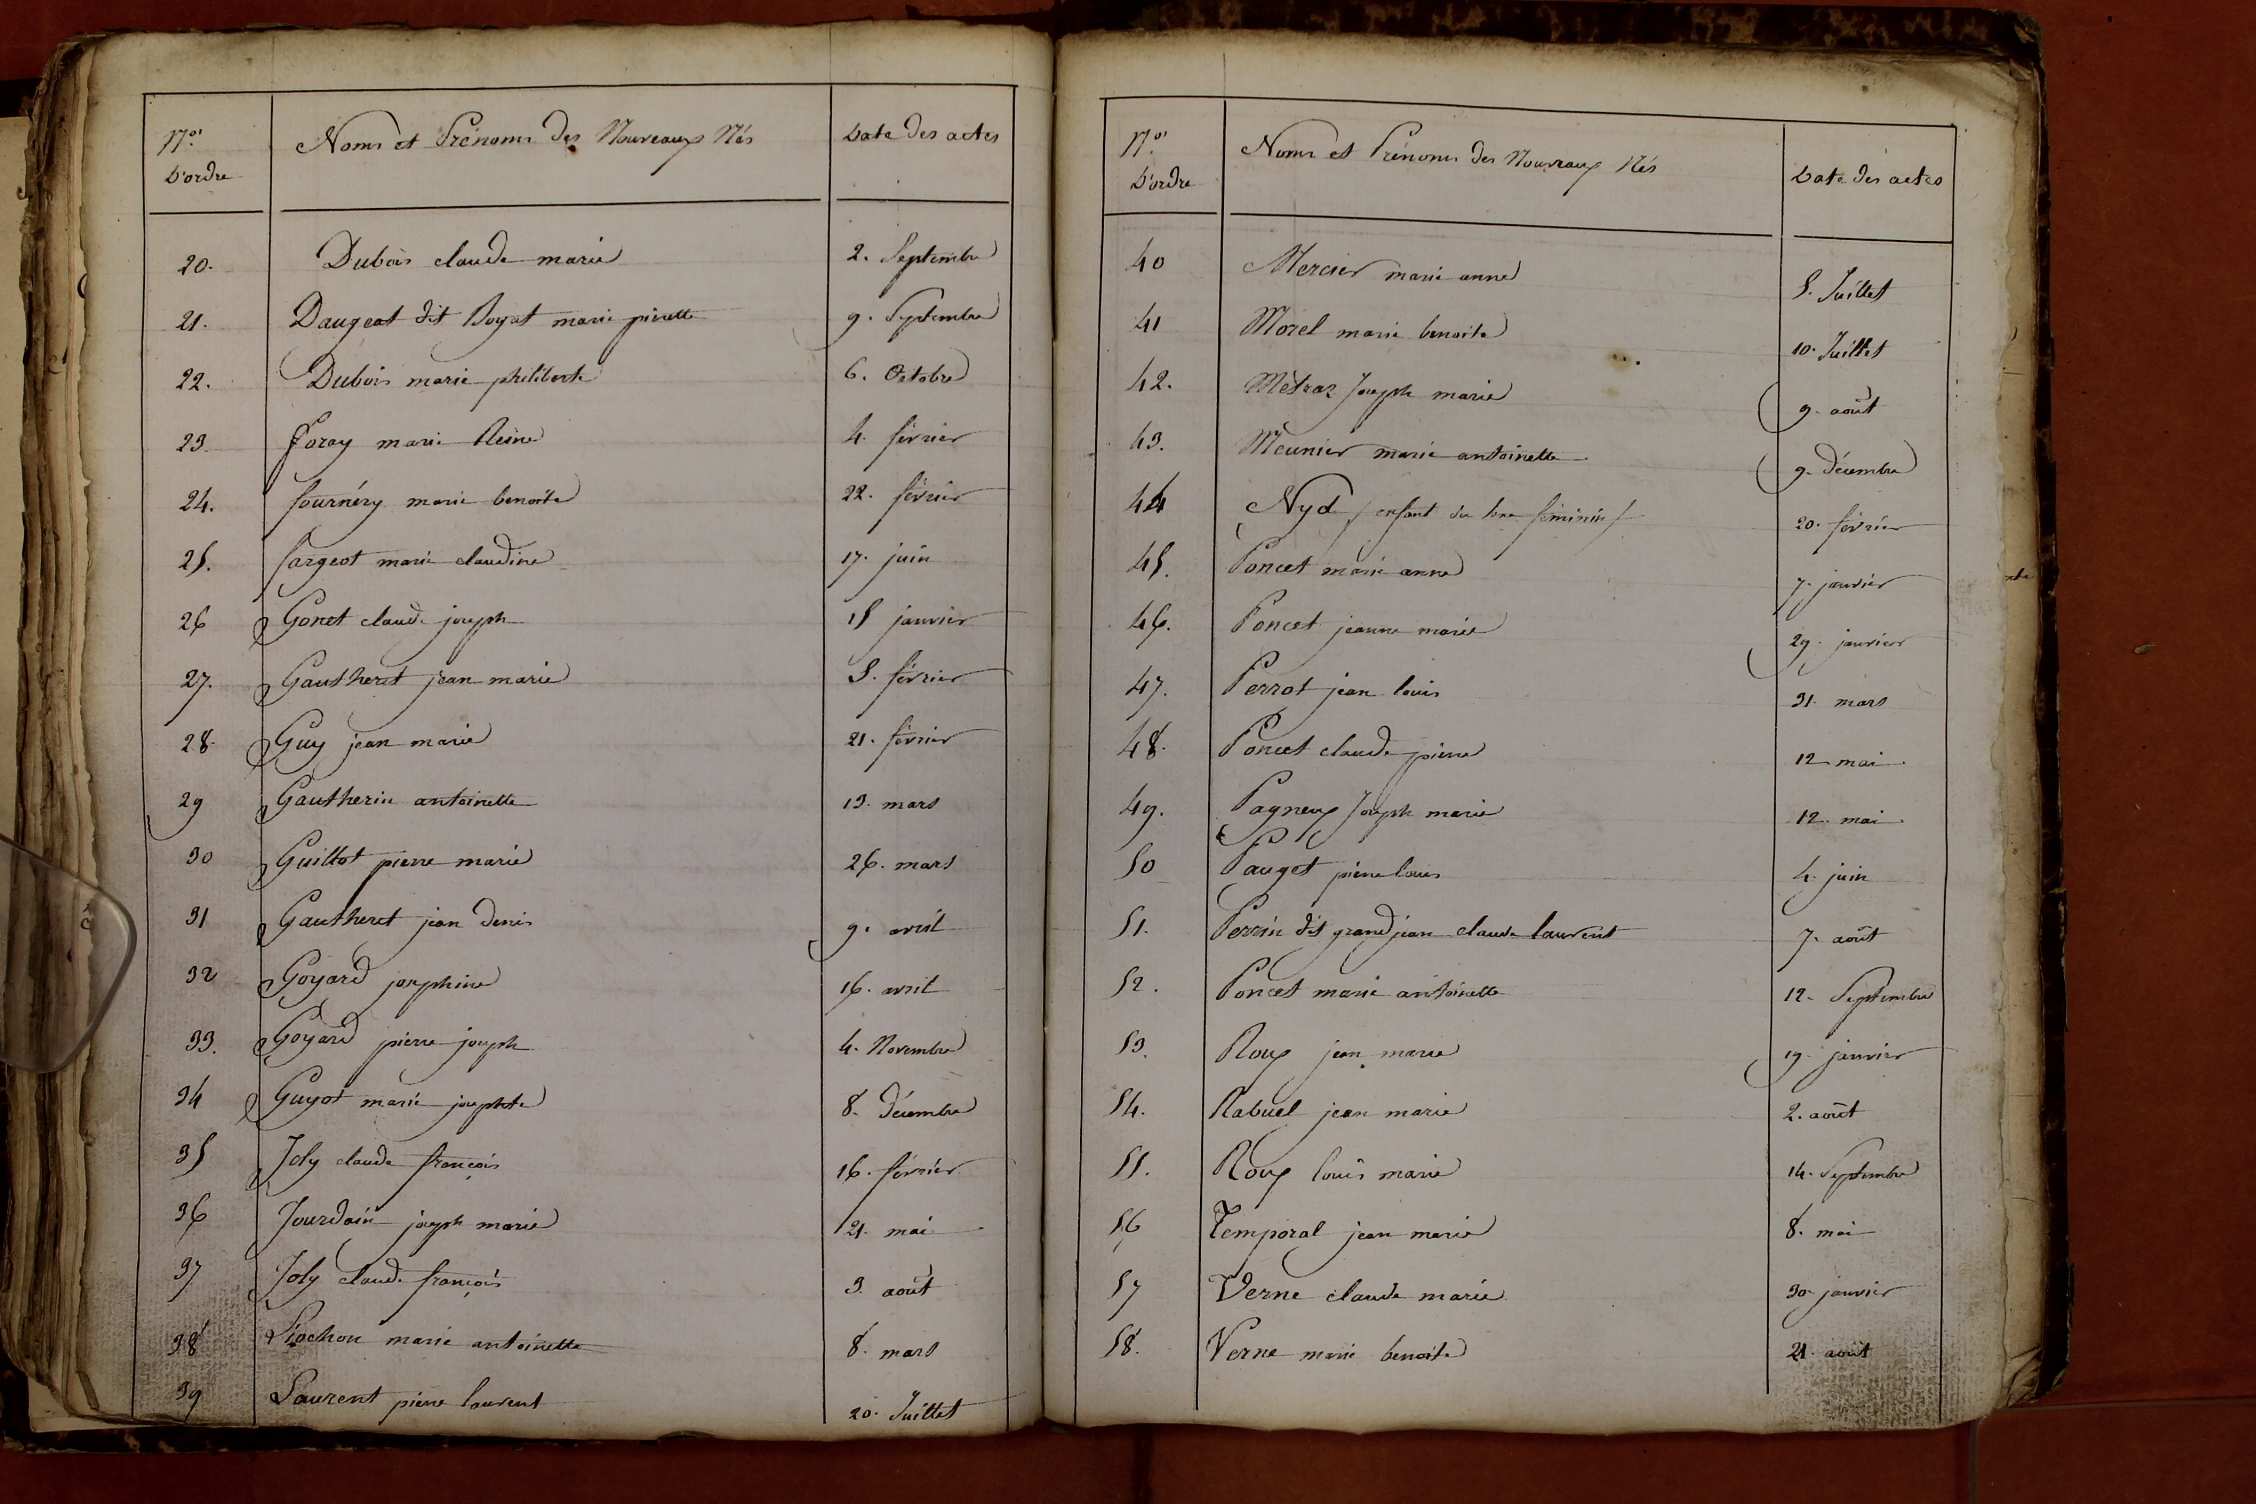 Nos Noms et Prénoms des Nouveaux Nés Date des actes
D'ordre
20. Dubois claude marie 2. Septembre
21. Daugeat dit Boyat marie pierrette 9. Septembre
22. Dubois marie philiberte 6. Octobre
23 foray marie Reine 4. février
24. fournéry marie benoite 22. février
25. fargeot marie claudine 17. juin
26 Gonet claude joseph 15 janvier
27. Gautheret jean marie 5. février
28. Guy jean marie 21. février
29 Gautherin antoinette 13. mars
30 Guillot pierre marie 26. mars
31 Gautheret jean denis 9. avril
32 Goyard josephine 16. avril
33. Goyard pierre joseph 4. Novembre
34 Guyot marie josephte 8. Décembre
35 Joly claude françois 16. février
36 Jourdain joseph marie 21. mai
37 Joly claude françois 3. août
38 Liochon marie antoinette 8. mars
39 Laurent pierre laurent 20. Juillet
Nos Noms et Prénoms des Nouveaux Nés Date des actes
D'ordre
40 Mercier marie anne 5. Juillet
41 Morel marie benoite 10. Juillet
42. Métraz Joseph marie 9. août
43. Meunier marie antoinette 9. Décembre
44 Nyd / enfant du sexe féminin / 20. février
45. Poncet marie anne 7. janvier
46. Poncet jeanne marie 29. janvier
47. Perrot jean louis 31. mars
48. Poncet claude pierre 12 mai
49. Pagneux Joseph marie 12. mai
50 Pauget pierre louis 4. juin
51. Perrin dit grandjean claude laurent 7. août
52. Poncet marie antoinette 12. Septembre
53. Roux jean marie 19. janvier
54. Rabuel jean marie 2. août
55. Roux louis marie 14. Septembre
56 Temporal jean marie 8. mai
57 Verne claude marie 30 janvier
58. Verne marie benoite 21. août